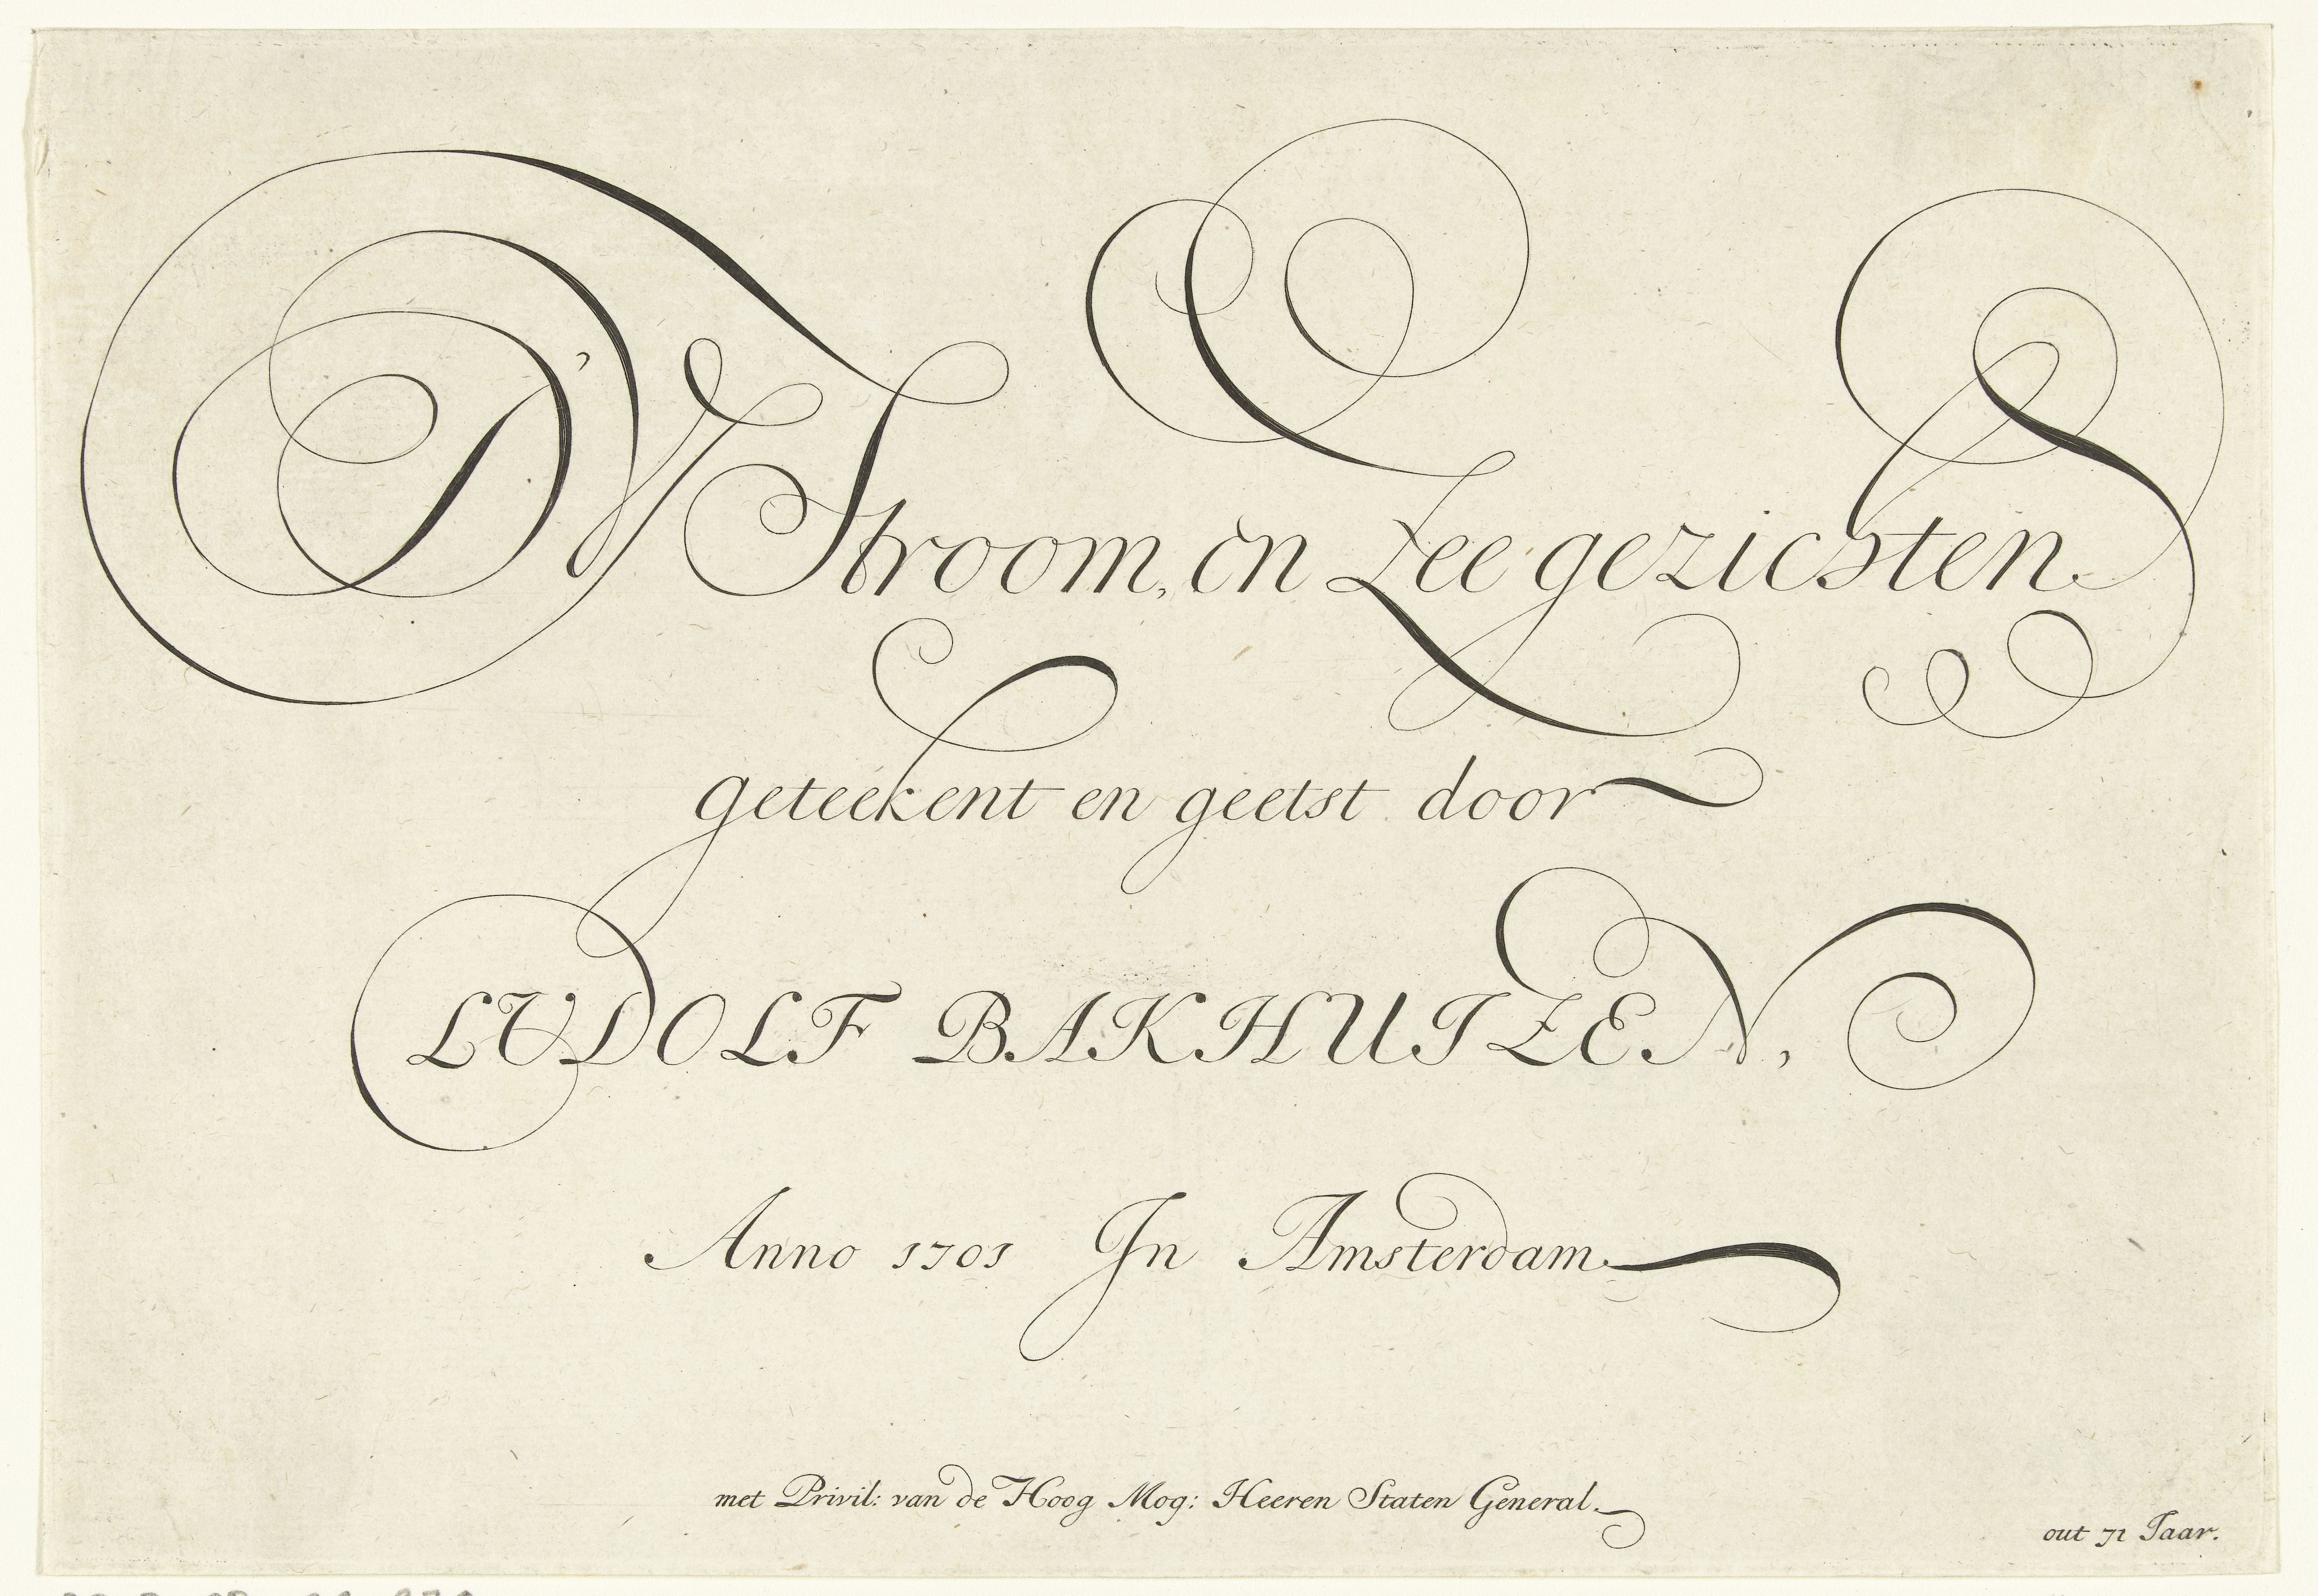 D'Y Stroom, en Zee gezichten
geteekent en geetst door
LUDOLF BAKHUIZEN,
Anno 1701 In Amsterdam
met Privil: van de Hoog Mog: Heeren Staten General.
out 71 Jaar.